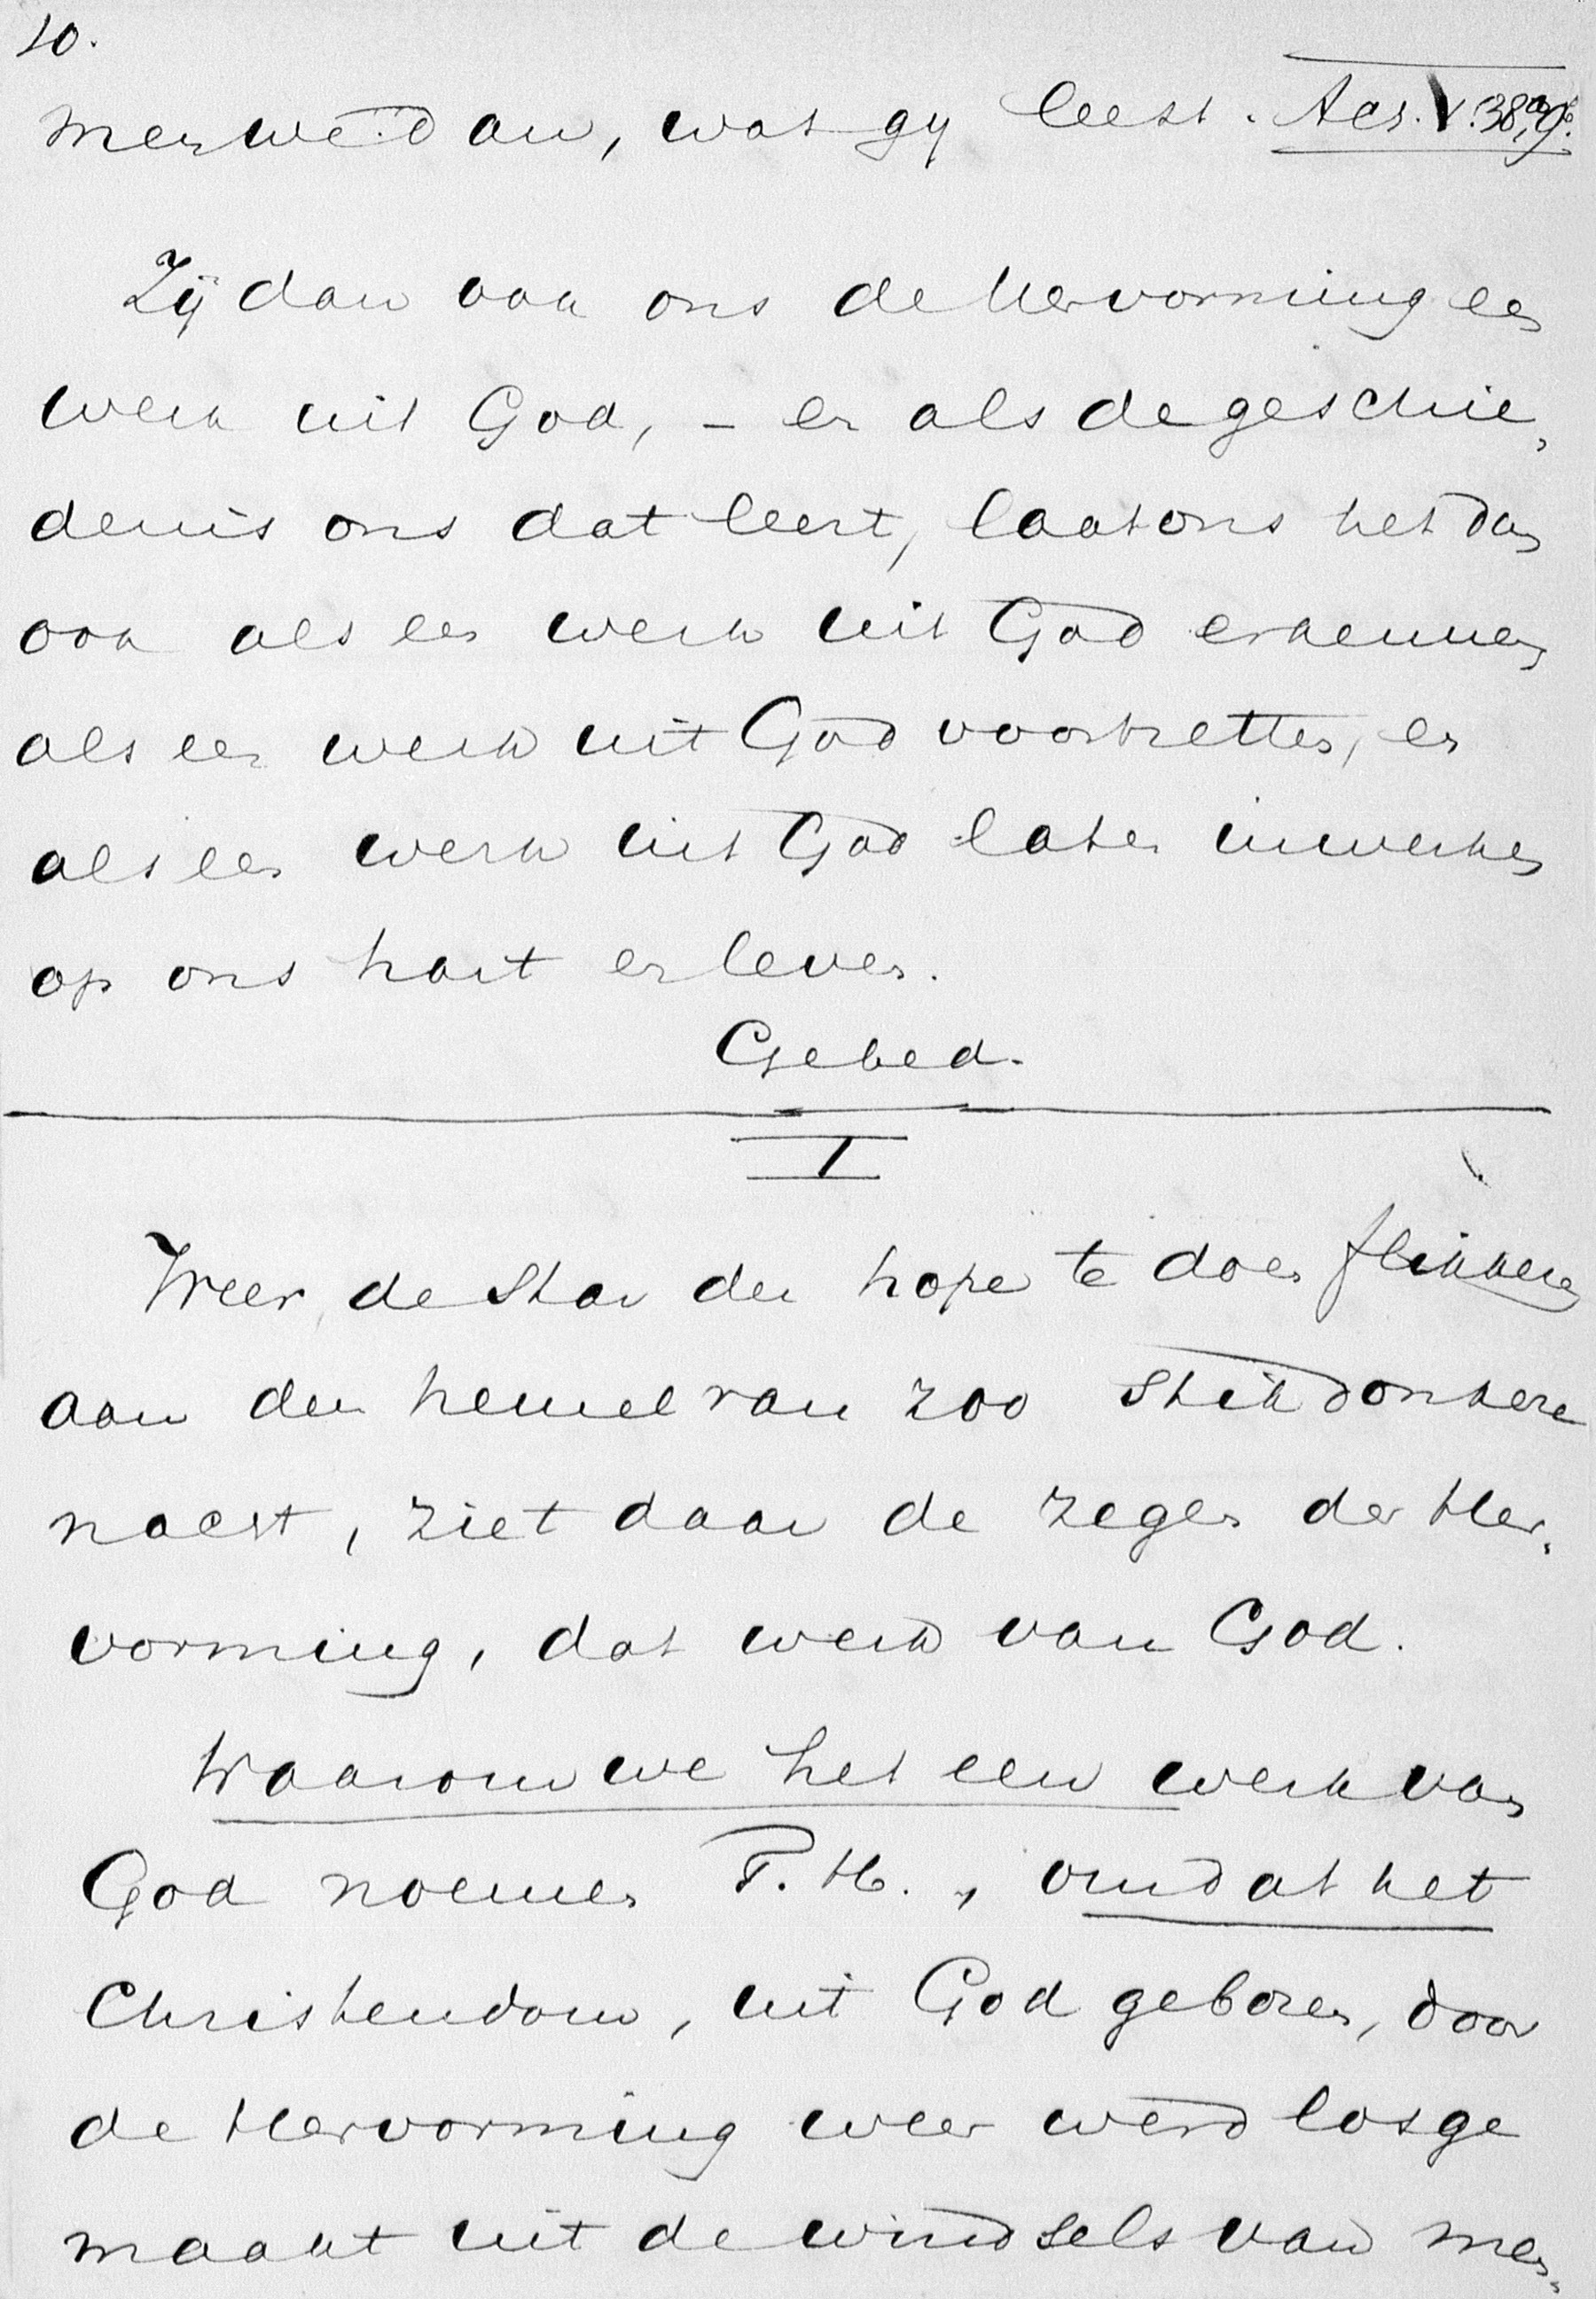 10.
men wèl dan, wat gy leest. Act. V. 38b, 39a.
Zij dan ook ons de Hervorming een
werk uit God, – en als de geschie-
denis ons dat leert, laat ons het dan
ook als een werk uit God erkennen
als een werk uit God voortzetten, en
als een werk uit God laten inwerken
op ons hart en leven.
Gebed.
I
Weer de star der hope te doen flikkeren
aan den hemel van zoo stikdonkere
nacht, ziet daar de zegen der Her-
vorming, dat werk van God.
Waarom we het een werk van
God noemen T. H., omdat het
Christendom, uit God geboren, door
de Hervorming weer werd losge
maakt uit de windsels van men-